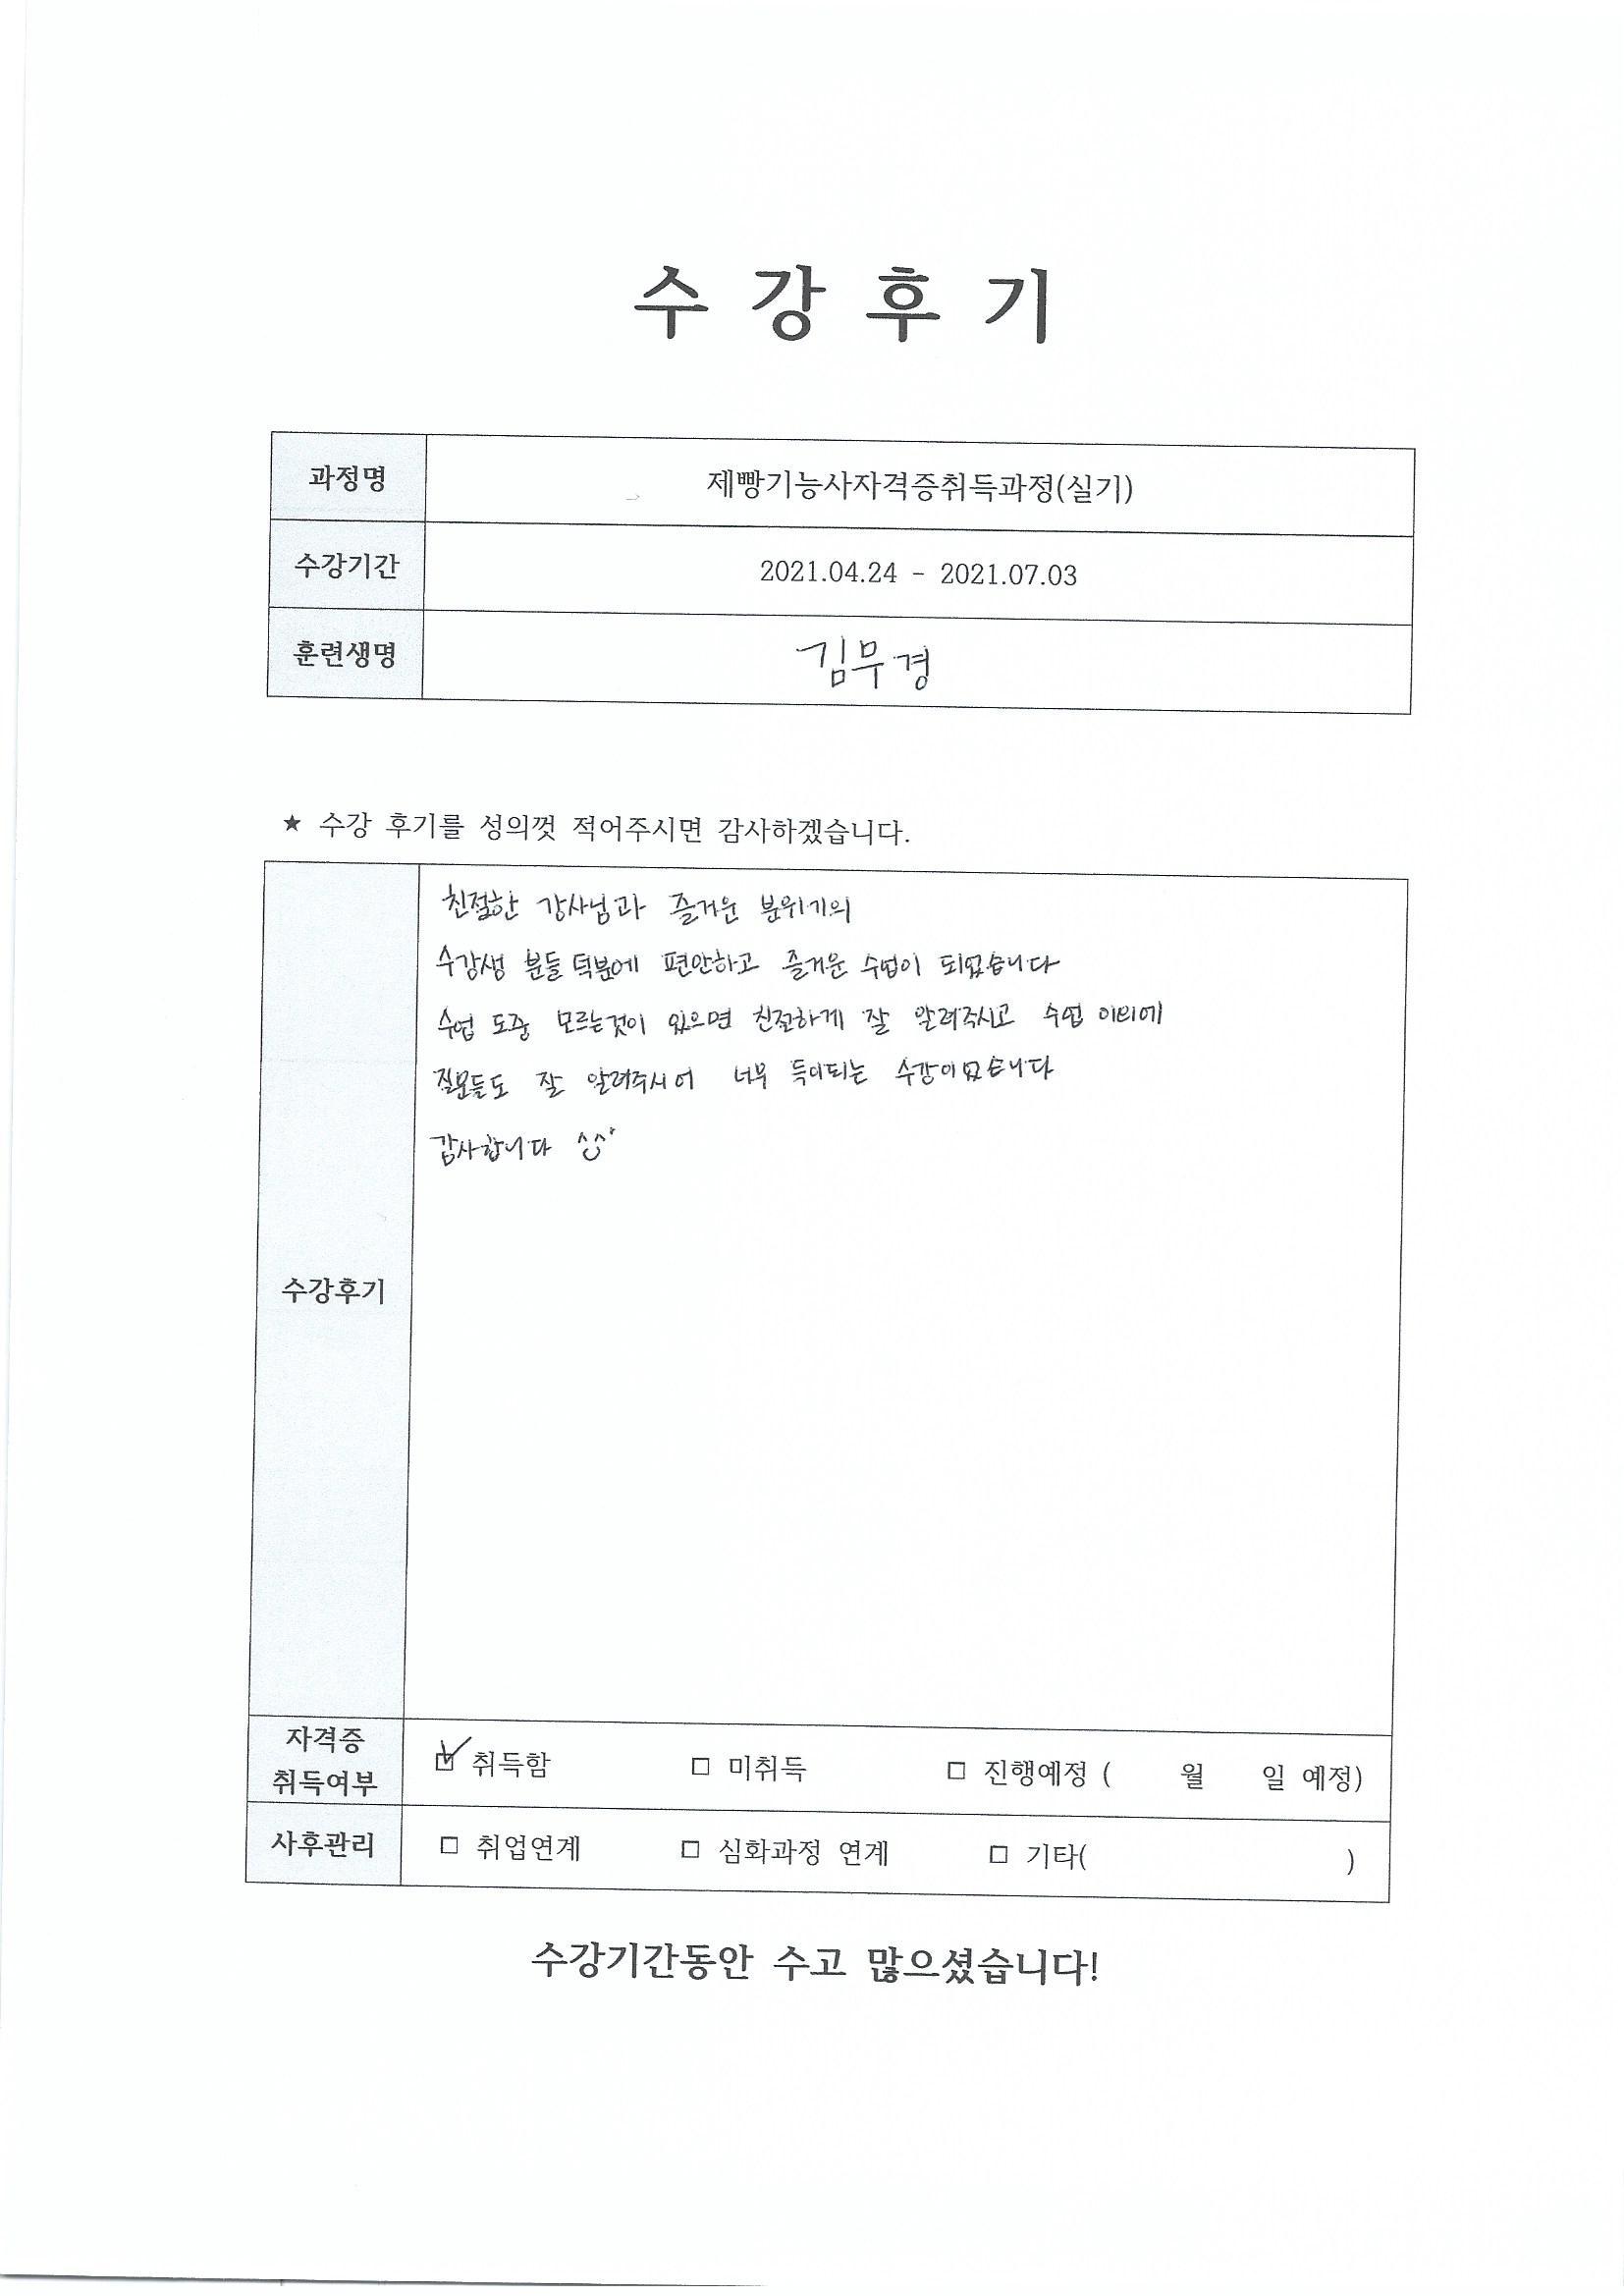 수 강 후 기
과정명 제빵기능사자격증취득과정(실기)
수강기간 2021.04.24 - 2021.07.03
훈련생명 김무경
★ 수강 후기를 성의껏 적어주시면 감사하겠습니다.
친절한 강사님과 즐거운 분위기의
수강생 분들 덕분에 편안하고 즐거운 수업이 되었습니다
수업 도중 모르는것이 있으면 친절하게 잘 알려주시고 수업 이외에
질문들도 잘 알려주시어 너무 득이되는 수강이었습니다
감사합니다 ^^
수강후기
자격증
취득여부
☑ 취득함 □ 미취득 □ 진행예정 ( 월 일 예정)
사후관리 □ 취업연계 □ 심화과정 연계 □ 기타( )
수강기간동안 수고 많으셨습니다!